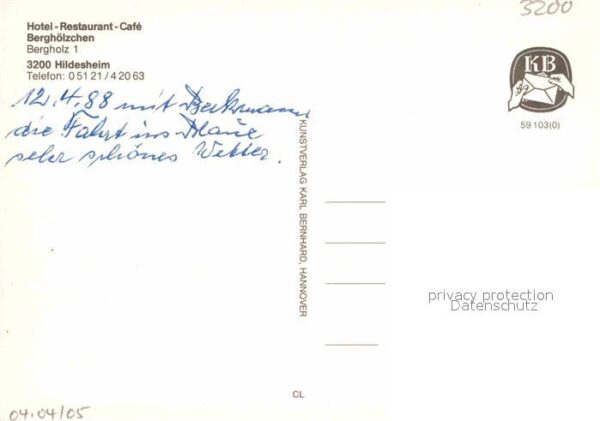 3200
Hotel-Restaurant-Café
Berghölzchen
Bergholz 1
3200 Hildesheim
Telefon: 0 51 21 / 4 20 63
12.4.88 mit Beckmann
die Fahrt ins Blaue
sehr schönes Wetter.
KB
59 103(0)
KUNSTVERLAG KARL BERNHARD, HANNOVER
privacy protection
Datenschutz
CL
04.04/05